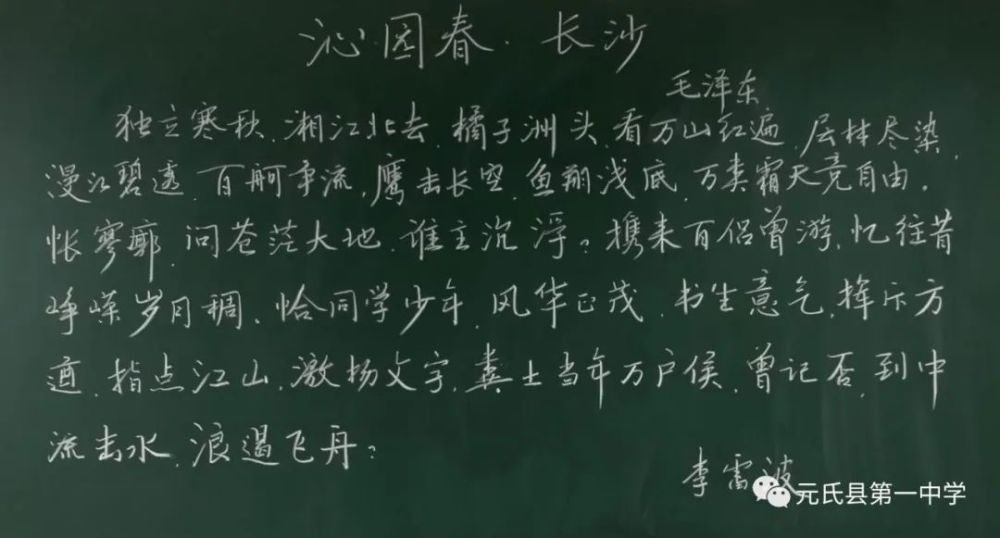 沁园春·长沙
毛泽东
独立寒秋,湘江北去,橘子洲头,看万山红遍,层林尽染,
漫江碧透,百舸争流,鹰击长空,鱼翔浅底,万类霜天竞自由。
怅寥廓,问苍茫大地,谁主沉浮?携来百侣曾游,忆往昔
峥嵘岁月稠、恰同学少年,风华正茂,书生意气,挥斥方
遒,指点江山,激扬文字,粪土当年万户侯,曾记否,到中
流击水,浪遏飞舟?
李雷波
元氏县第一中学